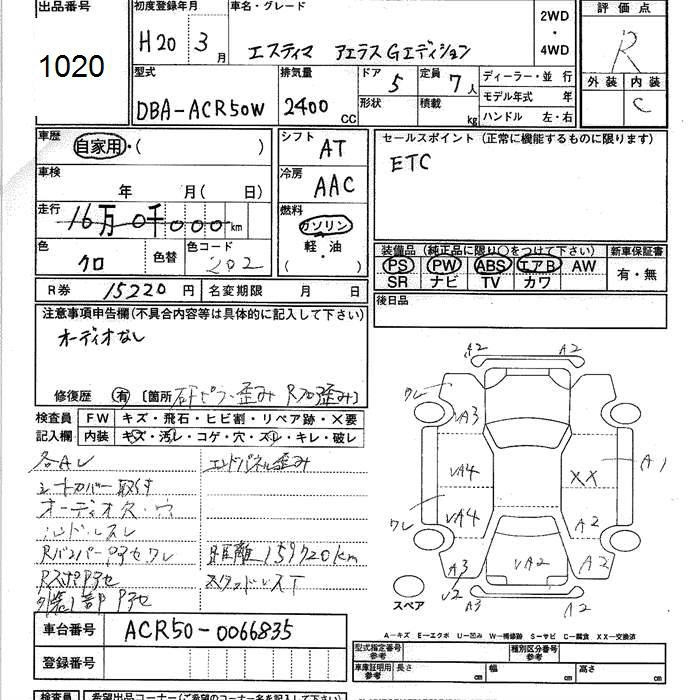 出品番号 1020
初度登録年月 H20年 3月
車名・グレード エスティマ アエラス Gエディション
2WD・4WD
評価点 R
外装 内装 C
型式 DBA-ACR50W
排気量 2400 CC
ドア 5 形状
定員 7人 積載 kg
ディーラー・並 行
モデル年式 年
ハンドル 左・右
車歴 自家用・( )
シフト AT
セールスポイント (正常に機能するものに限ります)
ETC
車検 年 月( 日)
冷房 AAC
走行 16万0千000km
燃料 ガソリン・軽・油 ( )
色 クロ 色替 色コード 202
装備品 (純正品に限り○をつけて下さい) 新車保証書
PS PW ABS エアB AW 有・無
SR ナビ TV カワ
R券 15220円 名変期限 月 日
後日品
注意事項申告欄(不具合内容等は具体的に記入して下さい)
オーディオなし
修復歴 有 〔箇所 歪み 歪み〕
検査員記入欄
FW キズ・飛石・ヒビ割・リペア跡・X要
内装 キズ・汚レ・コゲ・穴・スレ・キレ・破レ
各AL エンドパネル歪み
シートカバー取付
オーディオ穴・ウ
ハンドルスレ
Rバンパーアセワレ 距離159720km
スタッドレスT
A2 A2
ワレ
VA3
VA4 XX A1
ワレ VA4 A2
A3 VA2 A2
V2 A3 A2
スペア
A-キズ E-エクボ U-凹み W-補修跡 S-サビ C-腐食 XX-交換済
車台番号 ACR50-0066835
登録番号
型式指定番号 参考 種別区分番号 参考
車庫証明用 参考 長さ cm 幅 cm 高さ cm
検査員 希望出品コーナー(ご希望のコーナー名を記入して下